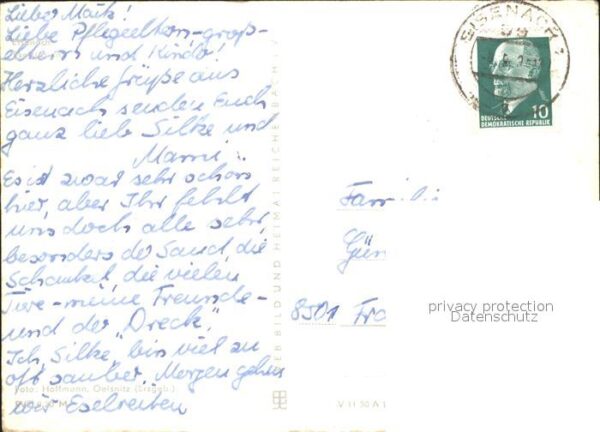 Lieber Maik!
Liebe Pflegeeltern-groß-
eltern und Kinder!
Herzliche Grüße aus
Eisenach senden Euch
ganz liebe Silke und
Mami.
Es ist zwar sehr schön
hier, aber Ihr fehlt
uns doch alle sehr,
besonders der Sand, die
Schaukel, die vielen
Tiere - meine Freunde -
und der „Dreck".
Ich, Silke, bin viel zu
oft sauber. Morgen gehen
wir Eselreiten
Foto: Hoffmann, Oelsnitz (Erzgeb.)
VEB BILD UND HEIMAT REICHENBACH I. V.
V 11 50 A 1
EISENACH 1
59
10
DEUTSCHE
DEMOKRATISCHE REPUBLIK
Familie
Gün
8501 Fra
privacy protection
Datenschutz